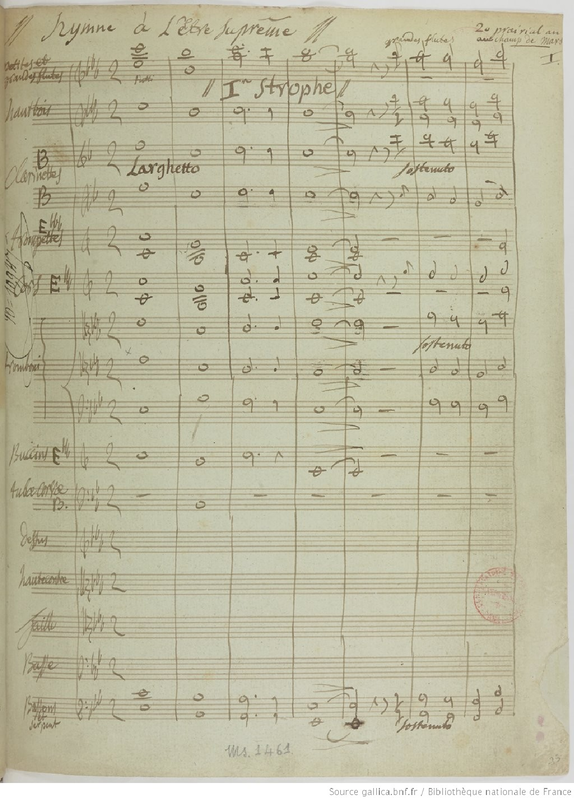 Hymne à L'Être Suprême
2o prairial an
au champ de Mars
I
grandes flutes
petites et
grandes flutes
1re Strophe
Hautbois
B
Clarinettes
Larghetto
sostenuto
B
E
trompettes
E
sostenuto
tromboni
Buccini E
tuba corva
B.
Dessus
hautecontre
taille
Basse
Bassons
et serpent
sostenuto
Ms. 1461
Source gallica.bnf.fr / Bibliothèque nationale de France